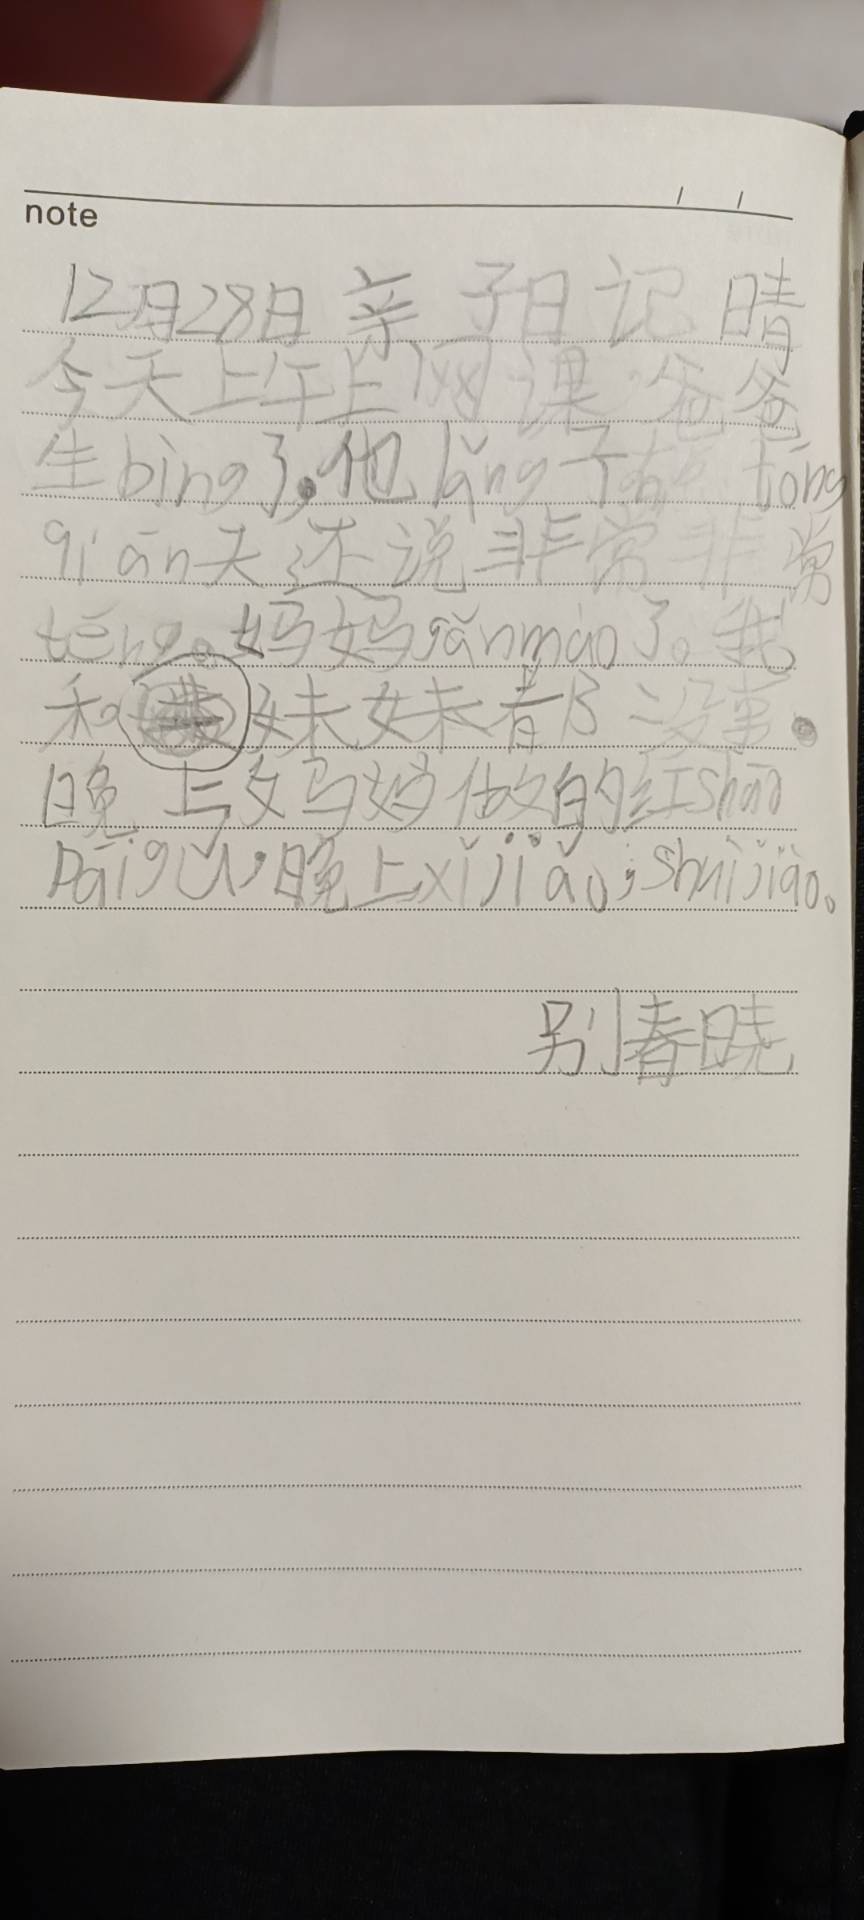 note
12月28日 亲子日记 晴
今天上午上网课,爸爸
生bìng了,他lǎng子 tōng
qiān天还说非常非常
téng。妈妈gǎnmào了。我
和妹妹都没事.
晚上妈妈做的红shāo
pāigǔ,晚上xǐjiǎo,shuìjiào。
别春晓